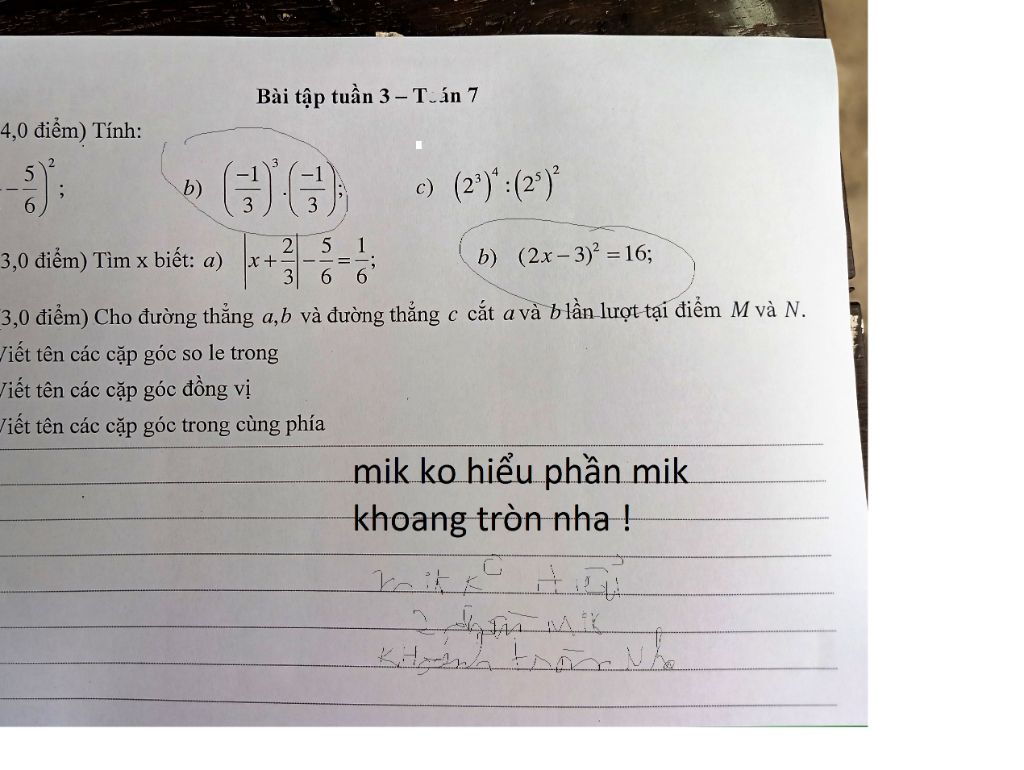 Bài tập tuần 3 – Toán 7
4,0 điểm) Tính:
- 5/6)²; b) (-1/3)³.(-1/3); c) (2³)⁴:(2⁵)²
3,0 điểm) Tìm x biết: a) |x+2/3|-5/6=1/6; b) (2x-3)²=16;
(3,0 điểm) Cho đường thẳng a,b và đường thẳng c cắt a và b lần lượt tại điểm M và N.
Viết tên các cặp góc so le trong
Viết tên các cặp góc đồng vị
Viết tên các cặp góc trong cùng phía
mik ko hiểu phần mik
khoang tròn nha !
mik kO HIỂU
2 phần Mik
KHoanh tròn Nha